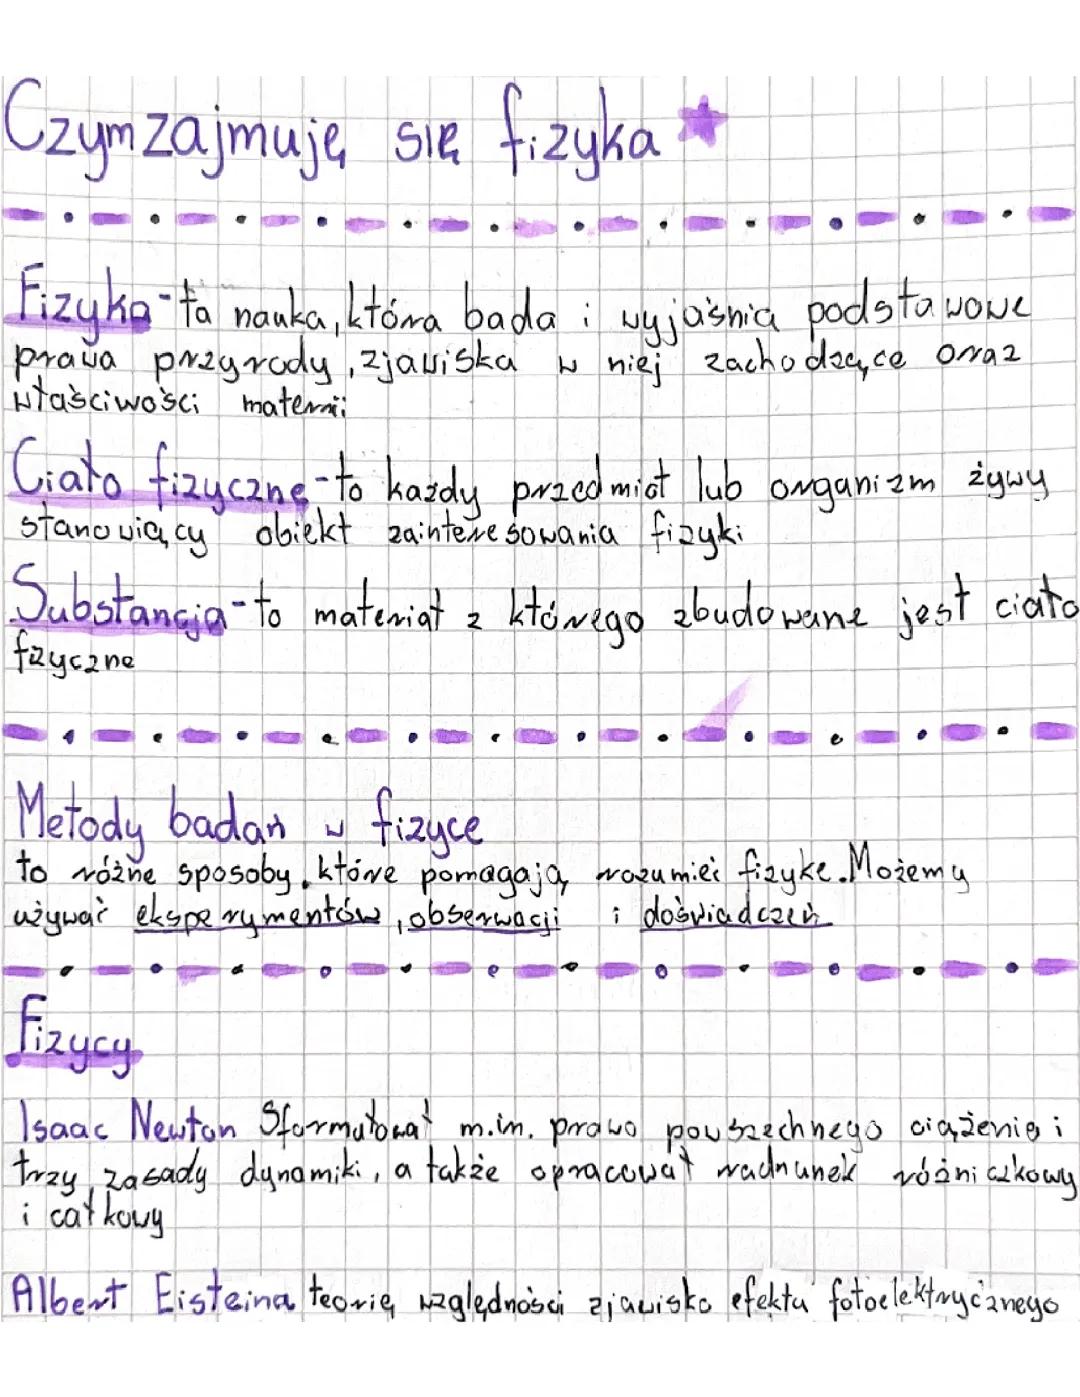 Czym zajmuję się fizyka
Fizyka-ta nauka, która bada i wyjaśnia podstawowe
prawa przyrody, zjawiska w niej zachodzące oraz
właściwości materii
Ciało fizyczne-to każdy przedmiot lub organizm żywy
stanowiący obiekt zainteresowania fizyki
Substancja-to materiał z którego zbudowane jest ciało
fizyczne
Metody badań w fizyce
to różne sposoby, które pomagają rozumieć fizyke. Możemy
używać eksperymentów, obserwacji i doświadczeń
Fizycy
Isaac Newton Sformułował m.in. prawo powszechnego ciążenia i
trzy zasady dynamiki, a także opracował rachunek różniczkowy
i całkowy
Albert Eisteina teorię względności zjawisko efektu fotoelektrycznego